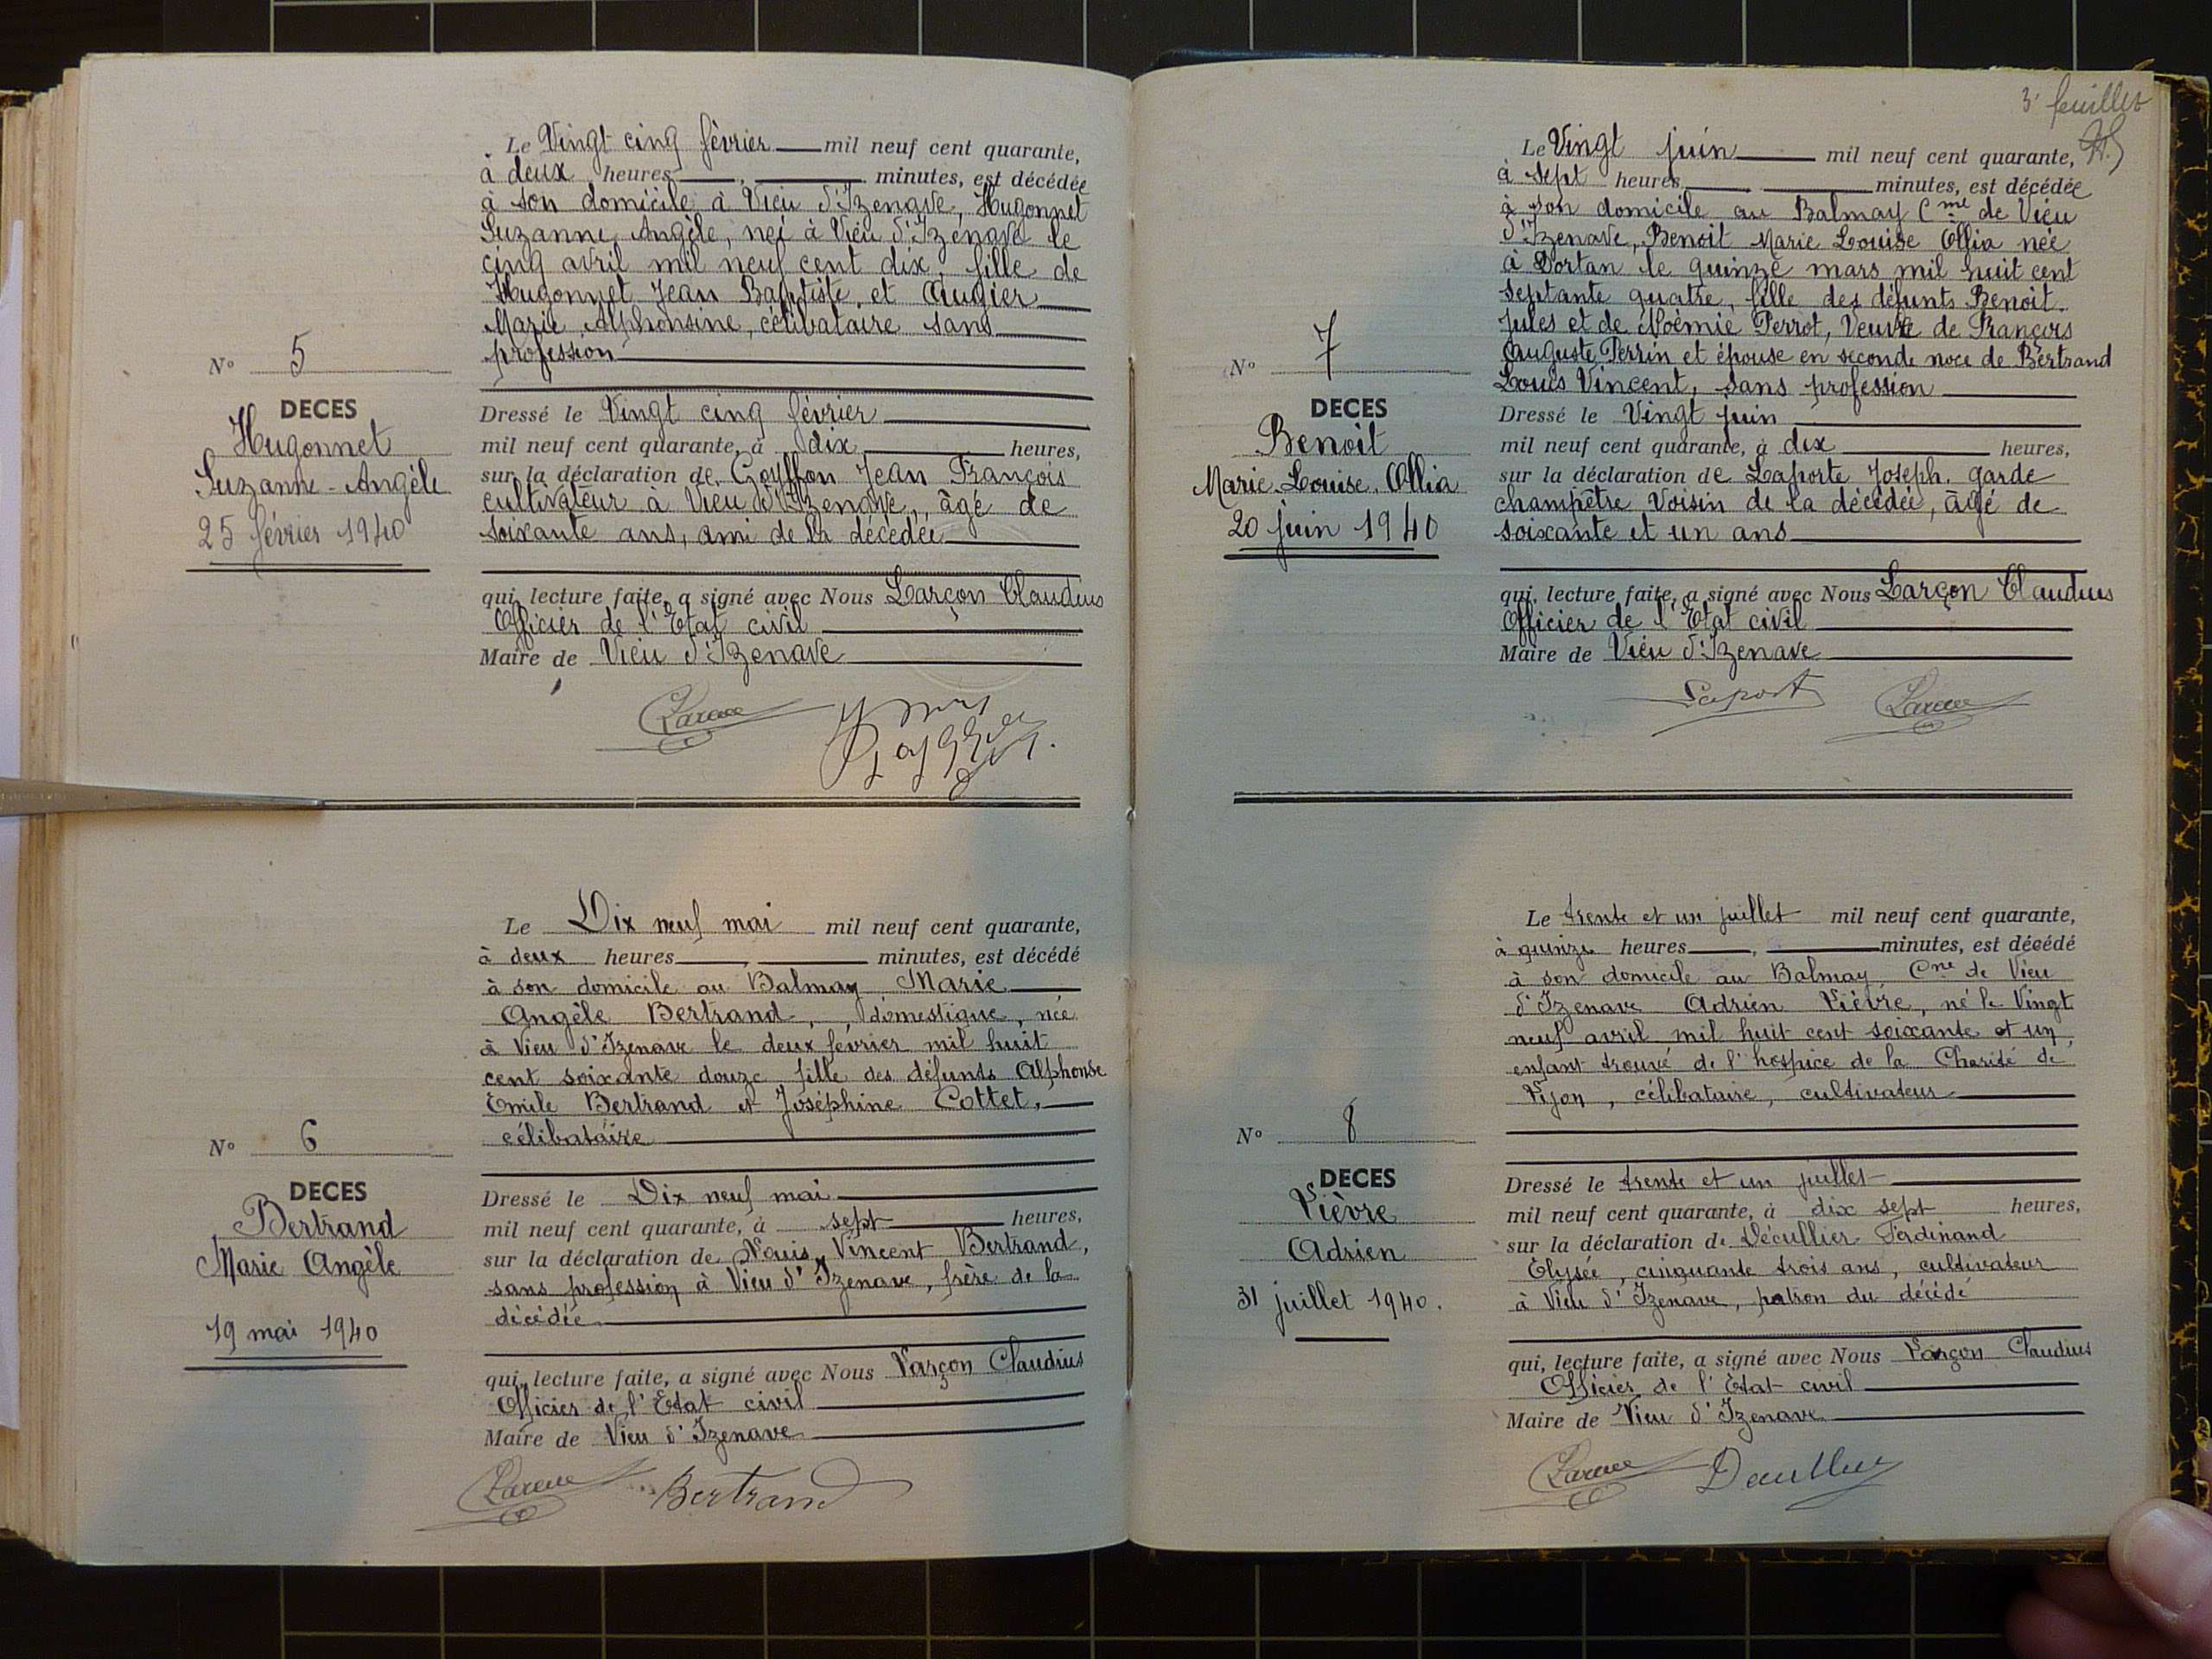 Le Vingt cinq février mil neuf cent quarante,
à deux heures, minutes, est décédée
à son domicile à Vieu d'Izenave, Hugonnet
Suzanne Angèle, neé à Vieu d'Izenave le
cinq avril mil neuf cent dix, fille de
Hugonnet Jean Baptiste et Augier
Marie Alphonsine, célibataire sans
profession
N° 5
DECES
Hugonnet
Suzanne-Angèle
25 février 1940
Dressé le Vingt cinq février
mil neuf cent quarante, à dix heures,
sur la déclaration de Goyffon Jean François
cultivateur à Vieu d'Izenave, âgé de
soixante ans, ami de la décédée
qui, lecture faite, a signé avec Nous Larçon Claudius
Officier de l'Etat civil
Maire de Vieu d'Izenave
Larçon
Le Dix neuf mai mil neuf cent quarante,
à deux heures, minutes, est décédé
à son domicile au Balmay Marie
Angèle Bertrand, domestique, née
à Vieu d'Izenave le deux février mil huit
cent soixante douze fille des défunts Alphonse
Emile Bertrand et Joséphine Cottet,
célibataire
N° 6
DECES
Bertrand
Marie Angèle
19 mai 1940
Dressé le Dix neuf mai
mil neuf cent quarante, à sept heures,
sur la déclaration de Louis Vincent Bertrand,
sans profession à Vieu d'Izenave, frère de la
décédée
qui, lecture faite, a signé avec Nous Larçon Claudius
Officier de l'Etat civil
Maire de Vieu d'Izenave
Larçon Bertrand
3e feuillet
Le Vingt juin mil neuf cent quarante,
à sept heures minutes, est décédée
à son domicile au Balmay Cme de Vieu
d'Izenave, Benoit Marie Louise Ollia née
à Dortan le quinze mars mil huit cent
septante quatre, fille des défunts Benoit
Jules et de Noémie Perrot, Veuve de François
Auguste Perrin et épouse en seconde noce de Bertrand
Louis Vincent, sans profession
N° 7
DECES
Benoit
Marie Louise Ollia
20 juin 1940
Dressé le Vingt juin
mil neuf cent quarante, à dix heures,
sur la déclaration de Laporte Joseph. garde
champêtre Voisin de la décédée, âgé de
soixante et un ans
qui, lecture faite, a signé avec Nous Larçon Claudius
Officier de l'Etat civil
Maire de Vieu d'Izenave
Laporte Larçon
Le trente et un juillet mil neuf cent quarante,
à quinze heures, minutes, est décédé
à son domicile au Balmay Cne de Vieu
d'Izenave Adrien Lièvre, né le Vingt
neuf avril mil huit cent soixante et un
enfant trouvé de l'hospice de la Charité de
Lyon, célibataire, cultivateur
N° 8
DECES
Lièvre
Adrien
31 juillet 1940.
Dressé le trente et un juillet
mil neuf cent quarante, à dix sept heures,
sur la déclaration de Décullier Ferdinand
Elysée, cinquante trois ans, cultivateur
à Vieu d'Izenave, patron du décédé
qui, lecture faite, a signé avec Nous Larçon Claudius
Officier de l'Etat civil
Maire de Vieu d'Izenave
Larçon Décullier